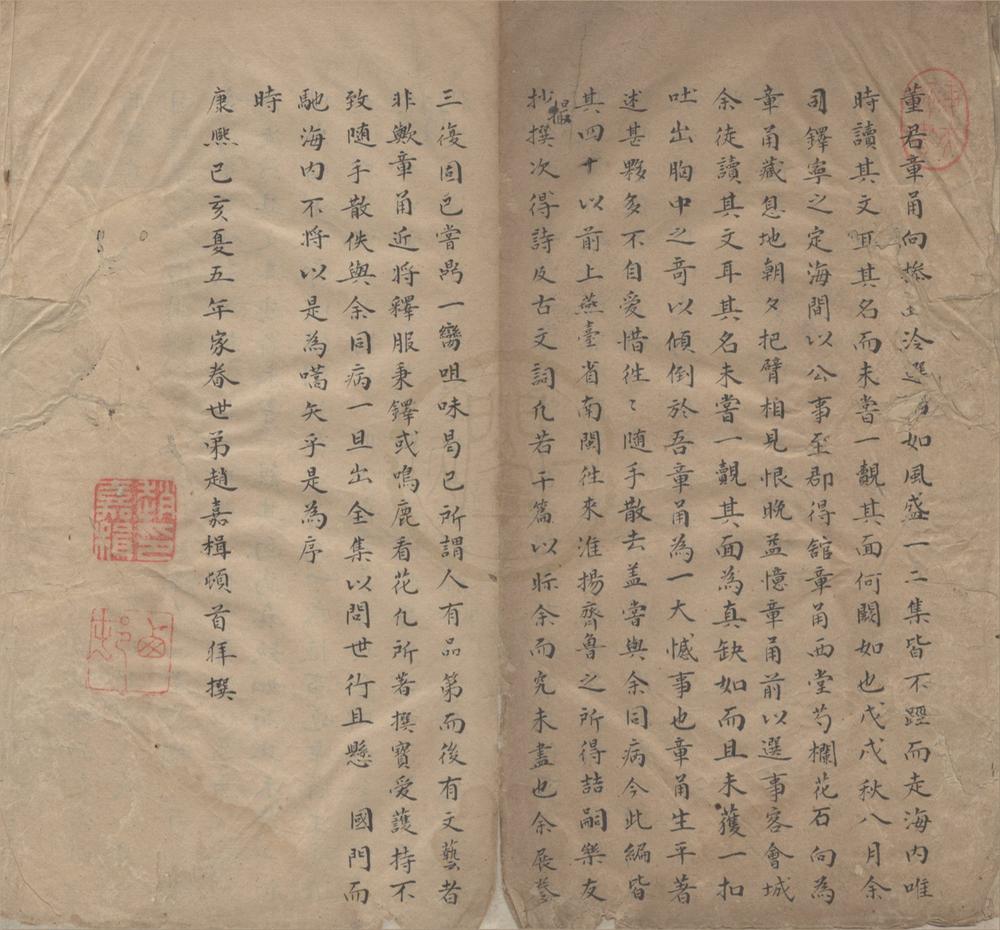 董君章甫向操土泠選如風盛一二集皆不踁而走海內唯
時讀其文耳其名而未嘗一覿其面何闕如也戊戌秋八月余
司鐸寧之定海間以公事至郡得館章甫西堂芍欄花石向為
章甫藏息地朝夕把臂相見恨晚益憶章甫前以選事客會城
余徒讀其文耳其名未嘗一覿其面為真缺如而且未獲一扣
吐出胸中之奇以傾倒於吾章甫為一大憾事也章甫生平著
述甚夥多不自愛惜徃〻随手散去盖嘗與余同病今此編皆
其四十以前上燕臺省南閩徃來淮揚齊魯之所得喆嗣樂友
抄撮撰次得詩及古文詞凡若干篇以眎余而究未盡也余展誊
三復固已嘗鼎一臠咀味曷已所謂人有品第而後有文藝者
非歟章甫近將釋服秉鐸或鳴鹿看花凡所著撰寳愛護持不
致随手散佚與余同病一旦出全集以問世行且懸 國門而
馳海内不將以是為嚆矢乎是為序
時
康熙己亥夏五年家眷世弟趙嘉楫頓首拜撰
趙嘉楫印